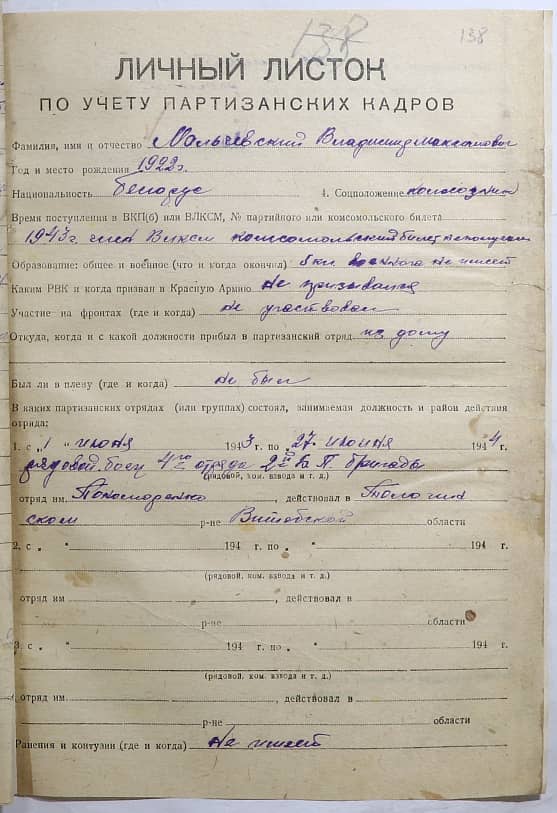 138 138
ЛИЧНЫЙ ЛИСТОК
ПО УЧЕТУ ПАРТИЗАНСКИХ КАДРОВ
Фамилия, имя и отчество Владимир Максимович
Год и место рождения 1922 г.
Национальность белорус 4. Соцположение колхозник
Время поступления в ВКП(б) или ВЛКСМ, № партийного или комсомольского билета
1943 г. член ВЛКСМ комсомольский билет не получал
Образование: общее и военное (что и когда окончил) 5 кл военного не имеет
Каким РВК и когда призван в Красную Армию Не призывался
Участие на фронтах (где и когда) Не участвовал
Откуда, когда и с какой должности прибыл в партизанский отряд из дому
Был ли в плену (где и когда) не был
В каких партизанских отрядах (или группах) состоял, занимаемая должность и район действия
отряда:
1. с „1 " июня 1943 г. по „27 " июня 1944 г.
рядовой боец 4го отряда 2ой П. бригады
(рядовой, ком. взвода и т. д.)
отряд им. Пономаренко, действовал в Толочин
ском р-не Витебской области
2. с „ " 194 г. по „ " 194 г.
(рядовой, ком. взвода и т. д.)
отряд им , действовал в
р-не области
3. с „ " 194 г. по „ " 194 г.
(рядовой, ком. взвода и т. д.)
отряд им. , действовал в
р-не области
Ранения и контузии (где и когда) Не имеет